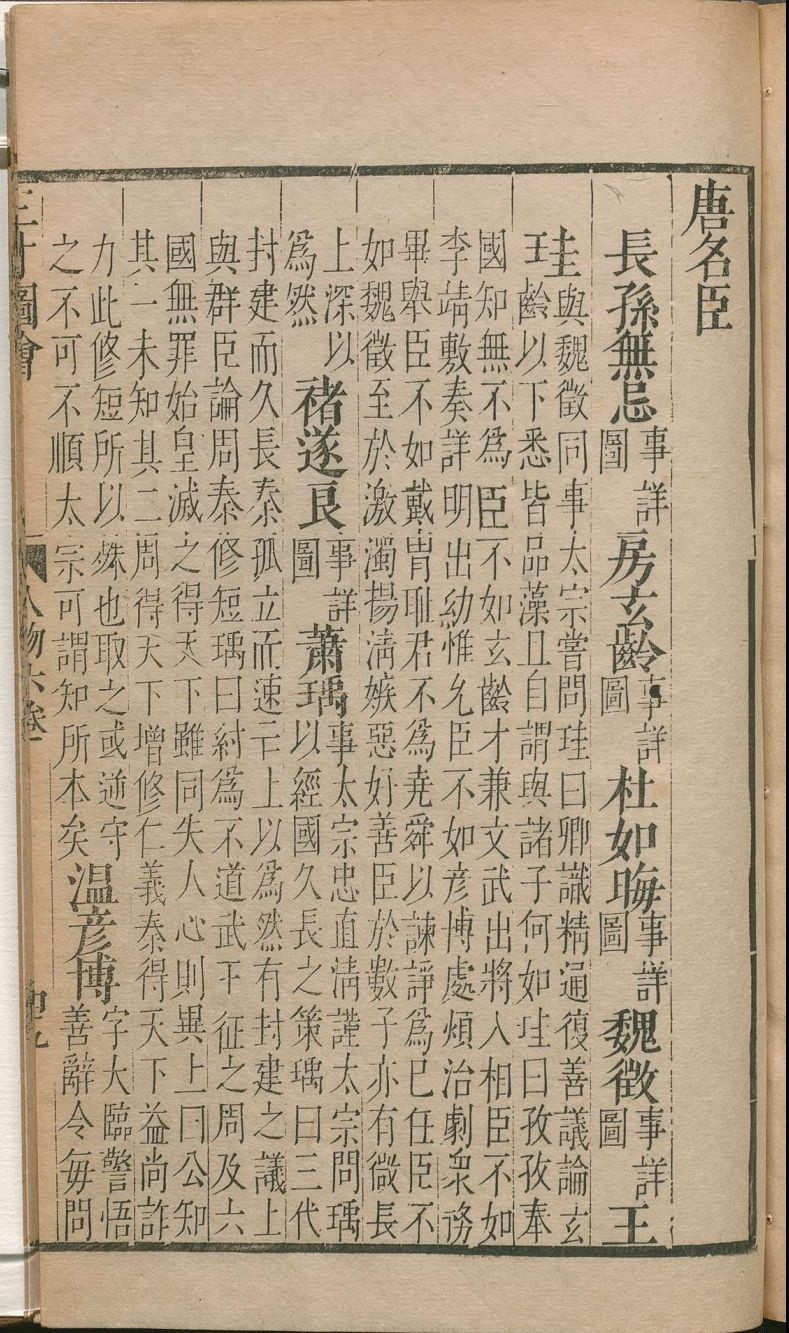 唐名臣
長孫無忌事詳圖房玄齡事詳圖杜如晦事詳圖魏徵事詳圖王
珪與魏徵同事太宗嘗問珪曰卿識精通復善議論玄
齡以下悉皆品藻且自謂與諸子何如珪曰孜孜奉
國知無不爲臣不如玄齡才兼文武出將入相臣不如
李靖敷奏詳明出納惟允臣不如彥博處煩治劇衆務
畢舉臣不如戴胄恥君不爲堯舜以諫諍爲已任臣不
如魏徵至於激濁揚清嫉惡好善臣於數子亦有微長
上深以爲然褚遂良事詳圖蕭瑀事太宗忠直清謹太宗問瑀
以經國久長之策瑀曰三代
封建而久長秦孤立而速亡上以爲然有封建之議上
與群臣論周秦修短瑀曰紂爲不道武王征之周及六
國無罪始皇滅之得天下雖同失人心則異上曰公知
其一未知其二周得天下增修仁義秦得天下益尚詐
力此修短所以殊也取之或逆守
之不可不順太宗可謂知所本矣溫彥博字大臨警悟
善辭令每問
三才圖會 人物六卷